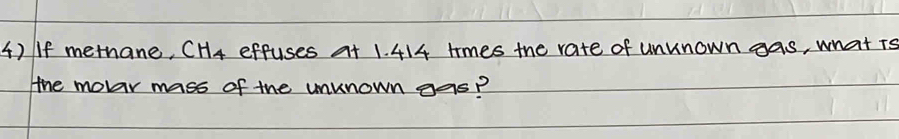 4) If methane, CH4 effuses at 1.414 times the rate of unknown gas, what is
the molar mass of the unknown gas?